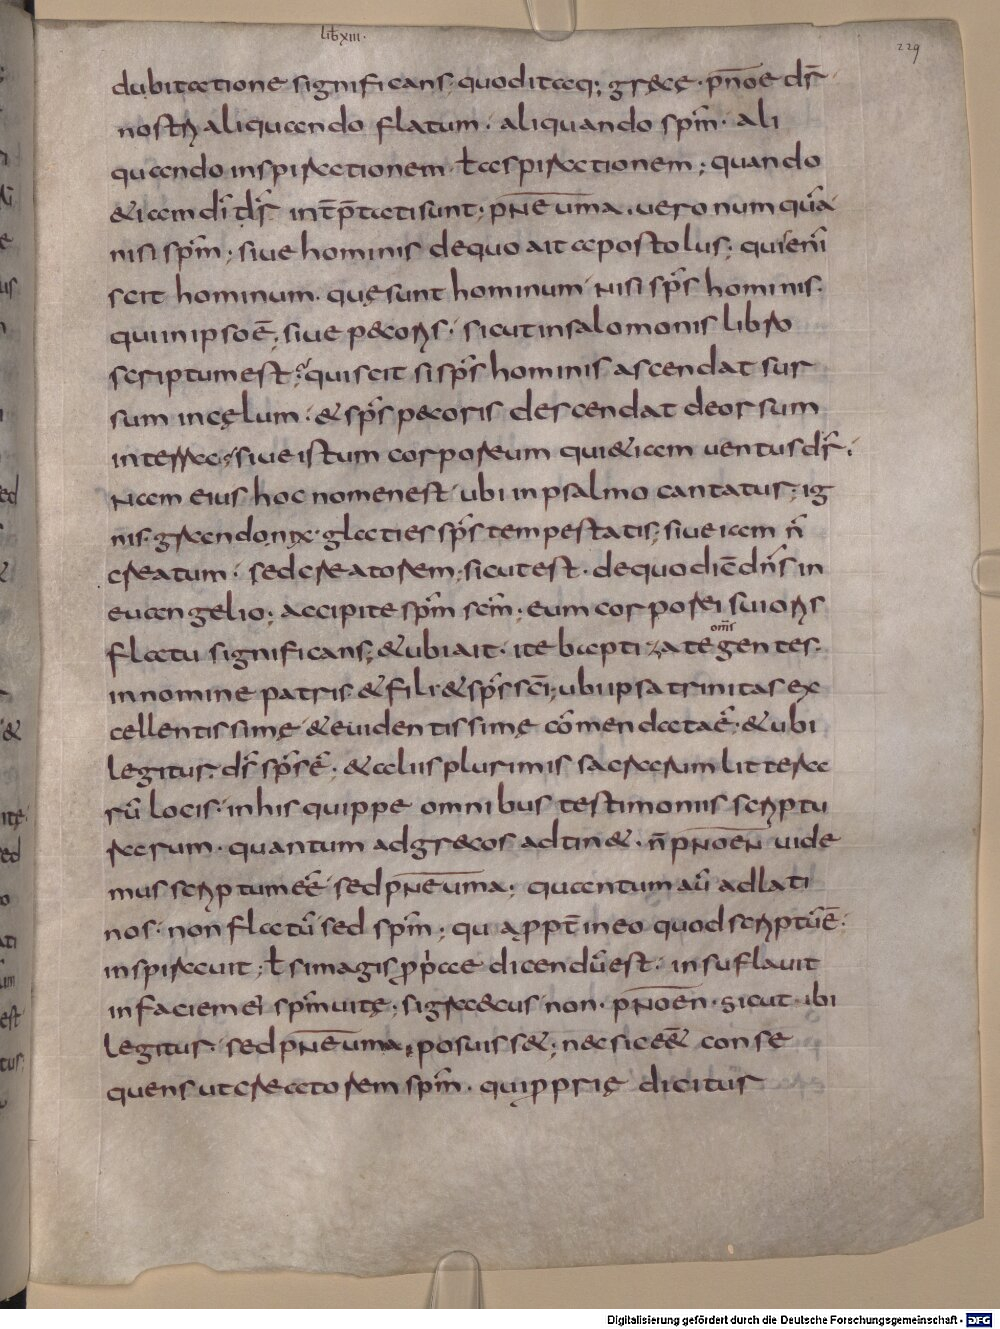 lib xiii.
229
dubitatione significans; quod itaq; grece. pnoe dr
nostri aliquando flatum. aliquando spm. ali
quando inspirationem. ł aspirationem; quando
& iam di dr int̄p̄tati sunt; pneuma. vero num quā
nisi spm; sive hominis de quo ait apostolus; quis enī
scit hominum. quę sunt hominum nisi sps hominis.
qui in ipso ē; sive pecoris. sicut in salomonis libro
scriptum est; quis scit si sps hominis ascendat sur
sum in cęlum. & sps pecoris descendat deorsum
in terra; sive istum corporeum qui & iam ventus dr;
nam eius hoc nomen est ubi in psalmo cantatur; ig
nis. grando nix. glaties sps tempestatis; sive iam n̄
creatum. sed creatorem; sicut est. de quo dic̄ dns in
euangelio; accipite spm scm; eum corporei sui oris
flatu significans; & ubi ait. ite baptizate omīs gentes.
in nomine patris & filii & sps sci; ubi ipsa trinitas ex
cellentissimę & evidentissimę cōmendata ē. & ubi
legitur. ds sps ē. & aliis plurimis sacrarum littera
rū locis. in his quippe omnibus testimoniis scriptu
rarum. quantum ad grecos adtin&. n̄ pnoen vide
mus scriptum eē sed pneuma; quantum aū ad lati
nos. non flatū sed spm; qua ppt̄ in eo quod scriptū ē.
inspiravit; ł si magis ppae dicendū est. insuflavit
in faciem ei spm vitę. si gracus non. pnoen. sicut ibi
legitur. sed pneuma, posuiss&; nec sic eē& conse
quens ut creatorem spm. qui pprię dicitur
Digitalisierung gefördert durch die Deutsche Forschungsgemeinschaft - DFG